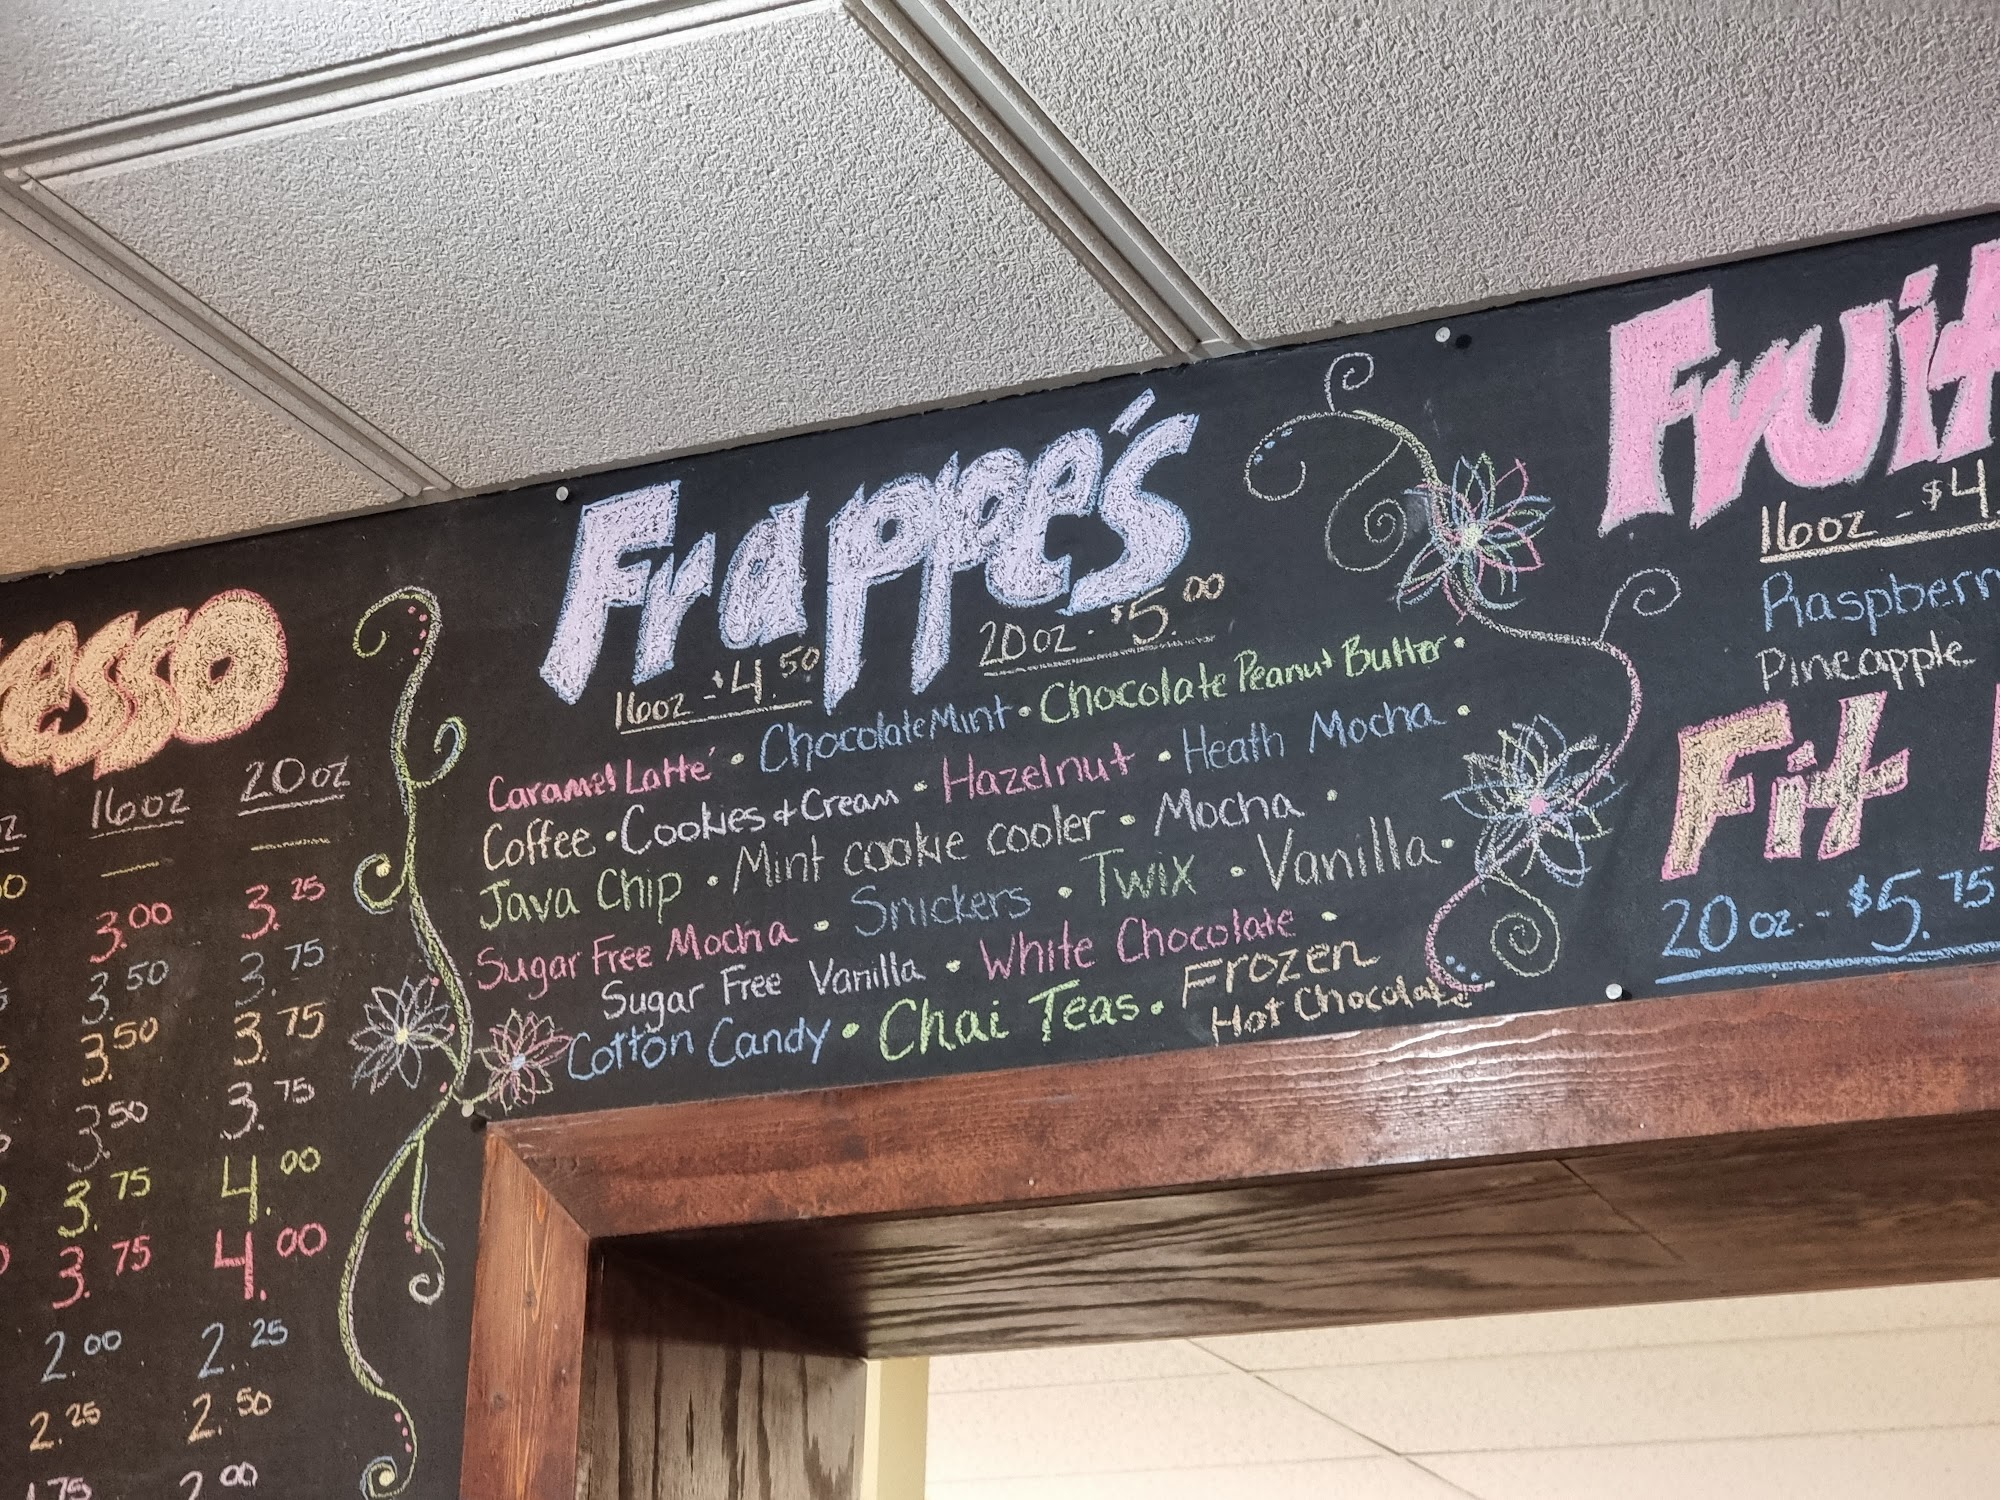 esso
16oz 20oz
3.00 3.25
3.50 3.75
3.50 3.75
3.50 3.75
3.75 4.00
3.75 4.00
2.00 2.25
2.25 2.50
Frappe's
16oz - $4.50 20oz - $5.00
Caramel Latte' • Chocolate Mint • Chocolate Peanut Butter •
Coffee • Cookies + Cream • Hazelnut • Heath Mocha •
Java Chip • Mint cookie cooler • Mocha •
Sugar Free Mocha • Snickers • Twix • Vanilla •
Sugar Free Vanilla • White Chocolate •
Cotton Candy • Chai Teas • Frozen
Hot Chocolate
Fruit
16oz - $4.
Raspberr
Pineapple
Fit
20oz - $5.75